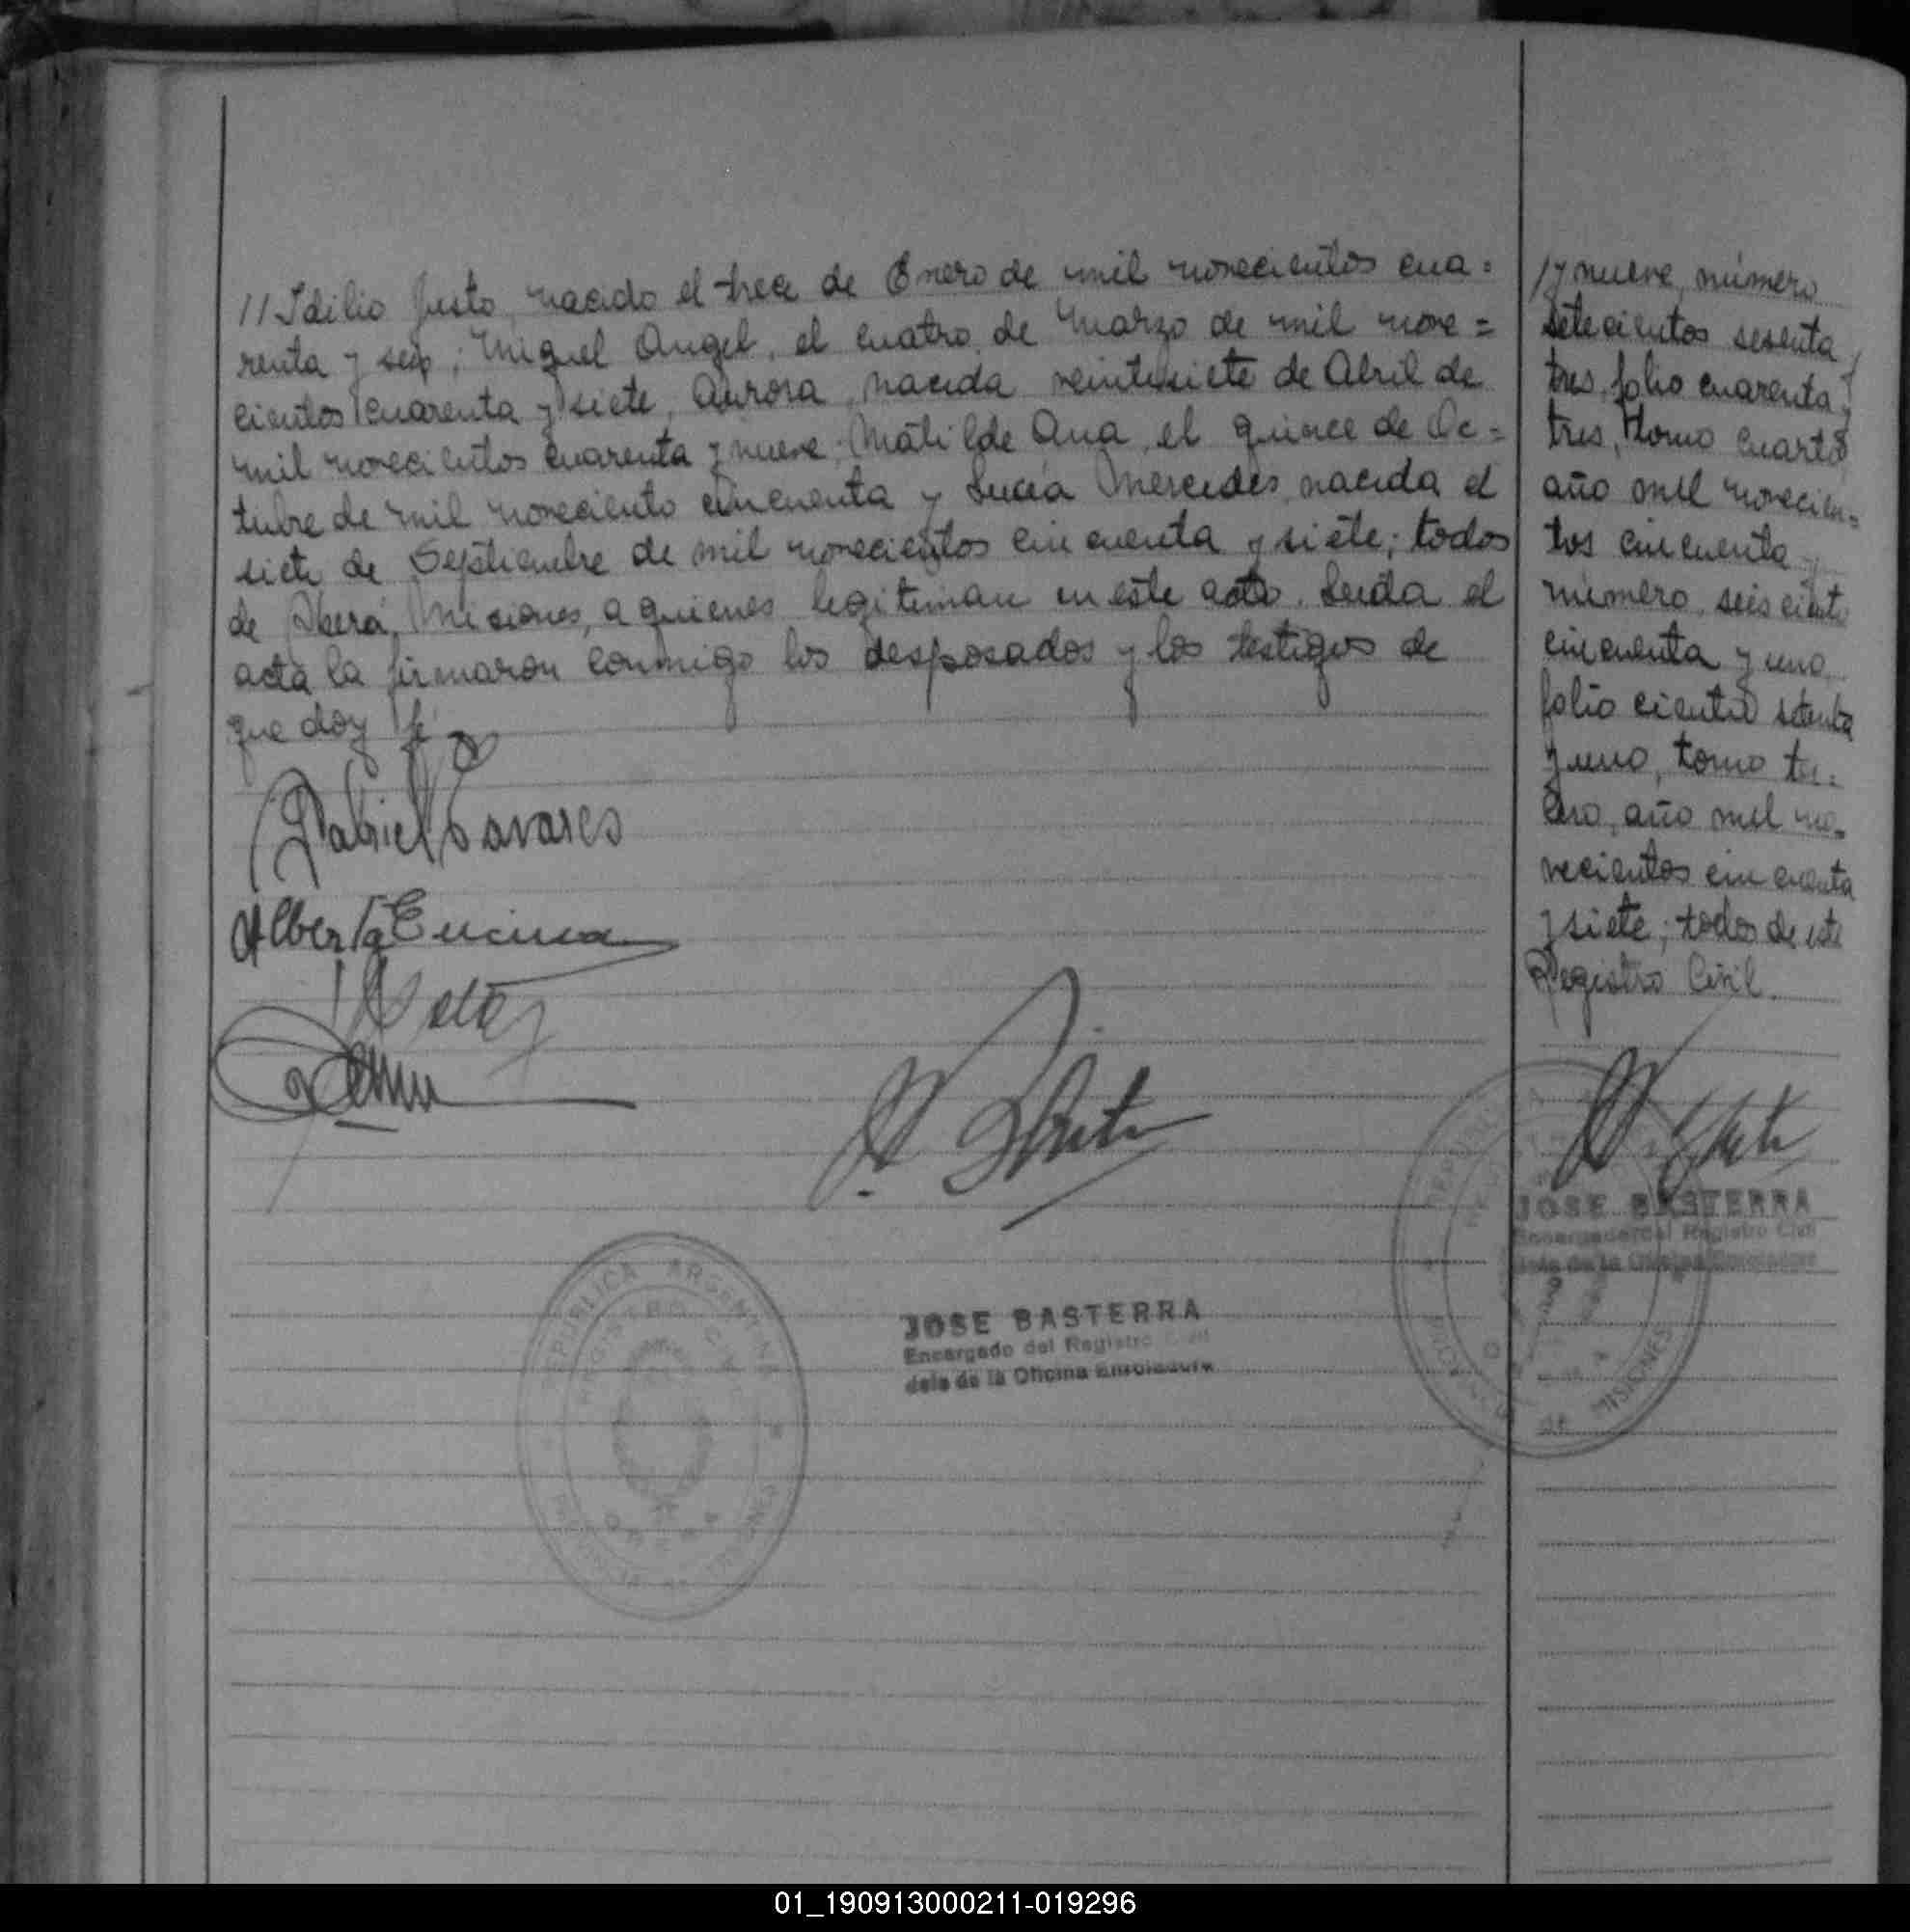 // Idilio Justo, nacido el trece de Enero de mil novecientos cua=
renta y seis; Miguel Angel, el cuatro de Marzo de mil nove=
cientos cuarenta y siete, Aurora, nacida veintisiete de Abril de
mil novecientos cuarenta y nueve; Matilde Ana, el quince de Oc=
tubre de mil noveciento cincuenta y Lucía Mercedes, nacida el
siete de Septiembre de mil novecientos cincuenta y siete; todos
de Oberá, Misiones, a quienes legitiman en este acto. Leída el
acta la firmaron conmigo los desposados y los testigos de
que doy fé
Gabriel Tavares
Alberta Encina
JOSE BASTERRA
Encargado del Registro Civil
de la Oficina
REPUBLICA ARGENTINA
REGISTRO CIVIL
MISIONES
/y nueve, número
setecientos sesenta y
tres, folio cuarenta y
tres, tomo cuarto
año mil novecien=
tos cincuenta y
número seiscientos
cincuenta y uno,
folio ciento setenta
y uno, tomo ter=
cero, año mil no=
vecientos cincuenta
y siete; todos de este
Registro Civil.
JOSE BASTERRA
Encargado del Registro Civil
de la Oficina
MISIONES
01_190913000211-019296